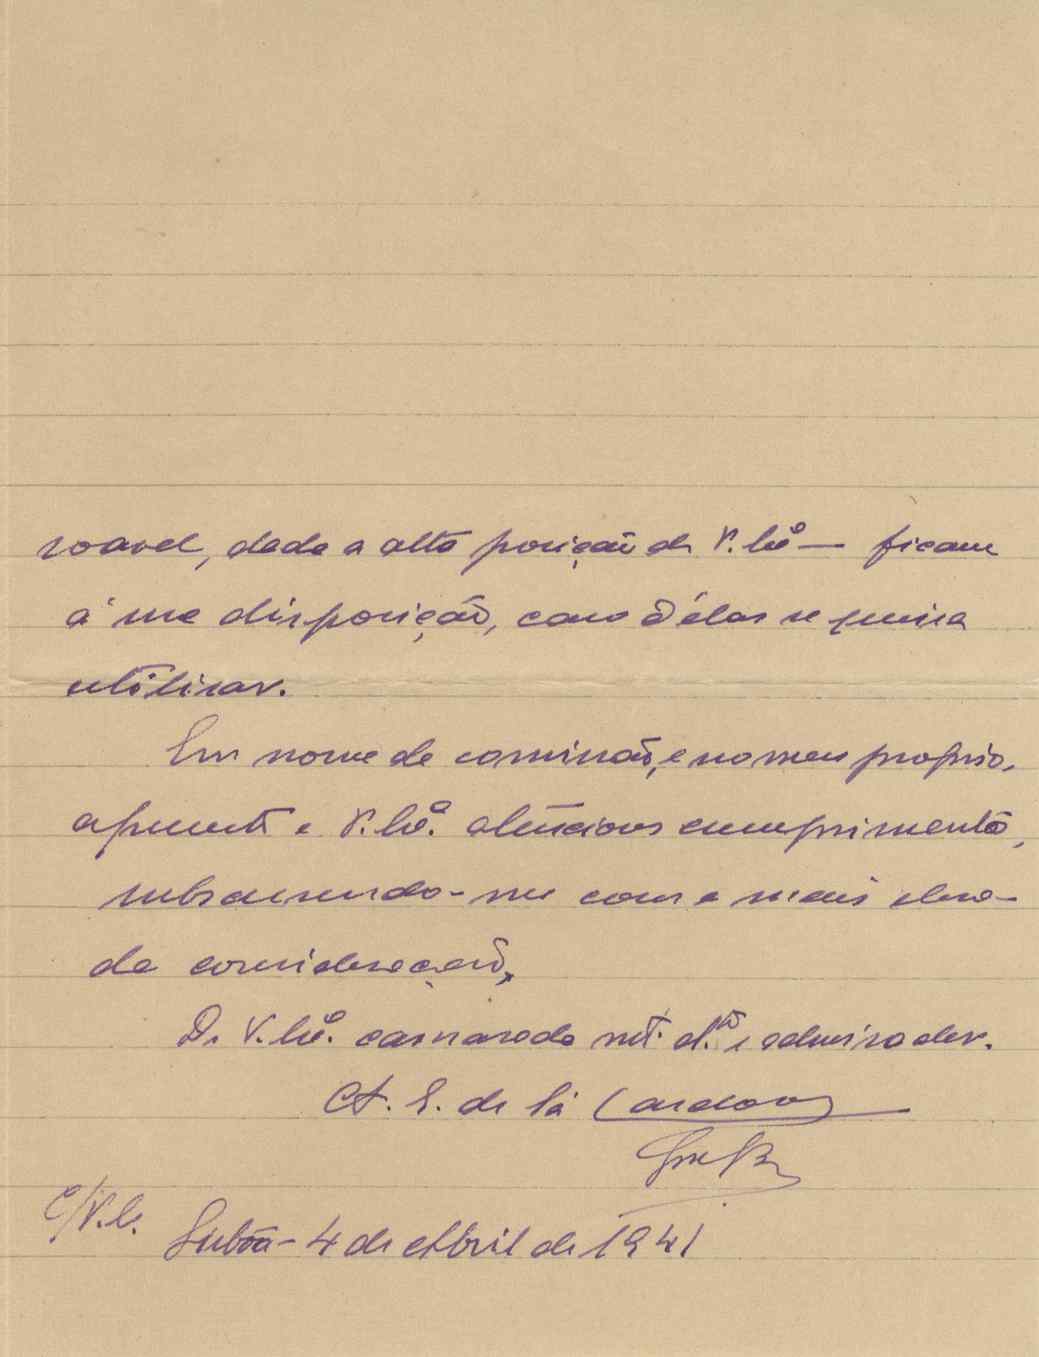 soavel, dada a alta posição de V. Exª — ficam
á sua disposição, caso d'élas se queira
utilisar.
Em nome da comissão, e no meu proprio,
apresento a V. Exª. atenciosos cumprimentos,
subscrevendo-me com a mais eleva-
da consideração,
De V. Exª. camarada mtº. e admirador.
A. E. de Sá Cardoso
Lisbôa - 4 de Abril de 1941